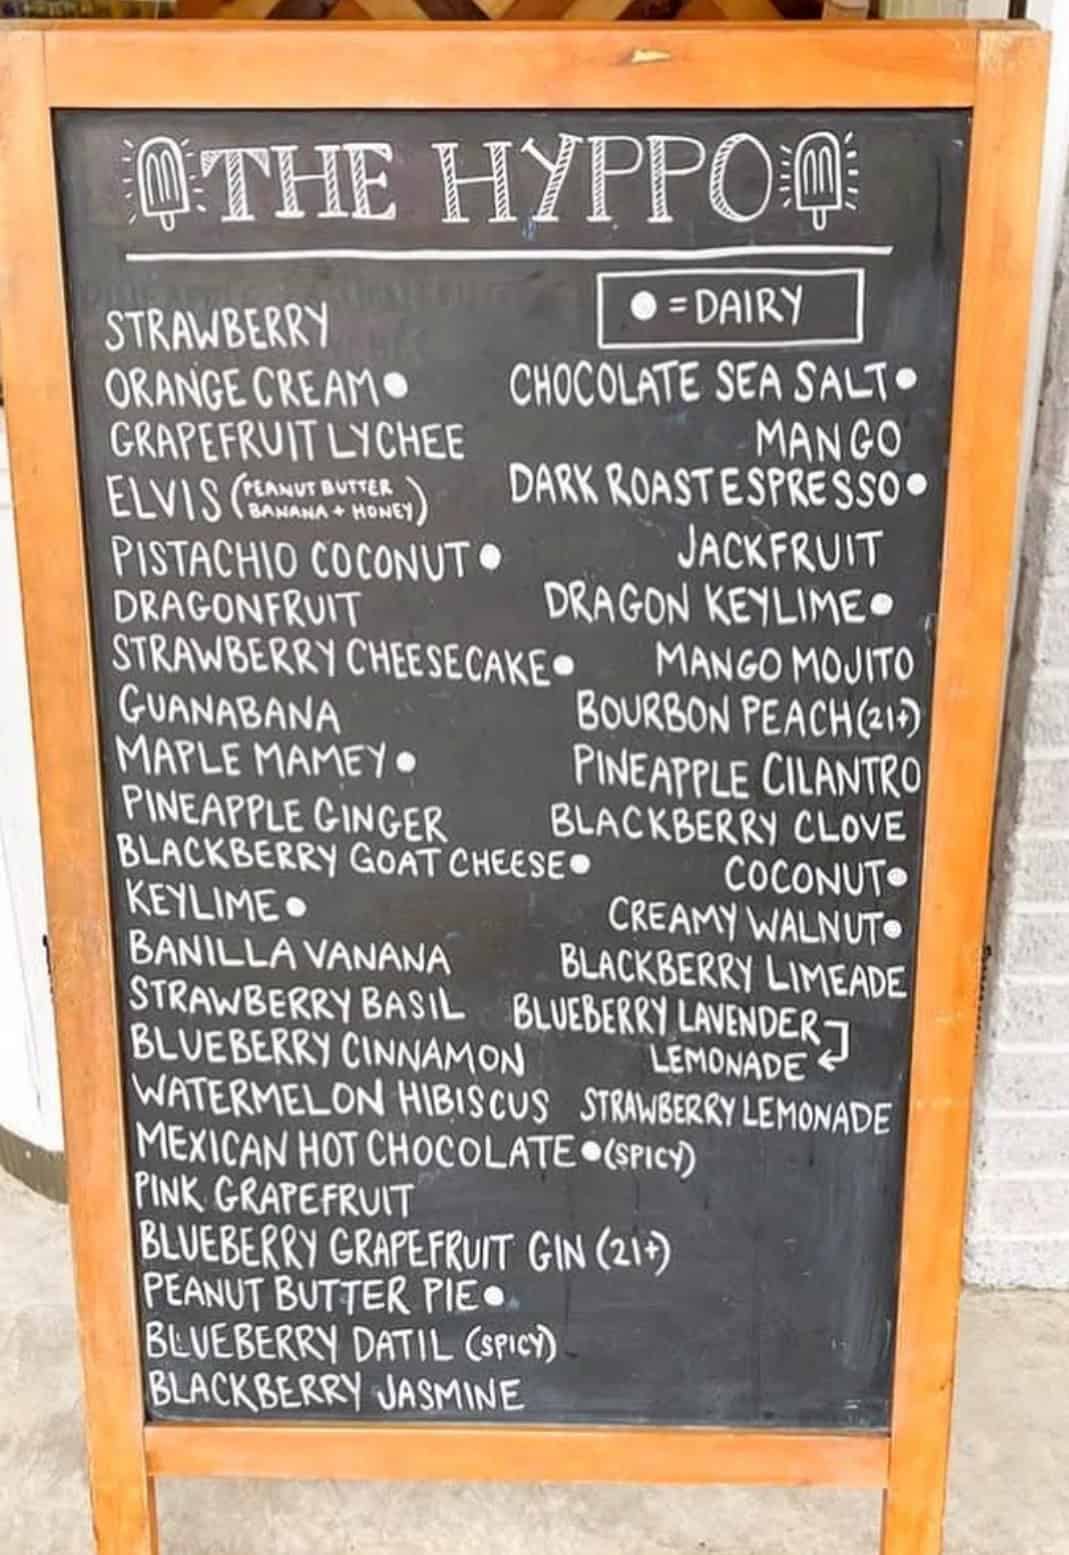 THE HYPPO
● = DAIRY
STRAWBERRY
ORANGE CREAM ●
GRAPEFRUIT LYCHEE
ELVIS (PEANUT BUTTER
BANANA + HONEY)
PISTACHIO COCONUT ●
DRAGONFRUIT
STRAWBERRY CHEESECAKE ●
GUANABANA
MAPLE MAMEY ●
PINEAPPLE GINGER
BLACKBERRY GOAT CHEESE ●
KEYLIME ●
BANILLA VANANA
STRAWBERRY BASIL
BLUEBERRY CINNAMON
WATERMELON HIBISCUS
MEXICAN HOT CHOCOLATE ● (SPICY)
PINK GRAPEFRUIT
BLUEBERRY GRAPEFRUIT GIN (21+)
PEANUT BUTTER PIE ●
BLUEBERRY DATIL (SPICY)
BLACKBERRY JASMINE
CHOCOLATE SEA SALT ●
MANGO
DARK ROAST ESPRESSO ●
JACKFRUIT
DRAGON KEYLIME ●
MANGO MOJITO
BOURBON PEACH (21+)
PINEAPPLE CILANTRO
BLACKBERRY CLOVE
COCONUT ●
CREAMY WALNUT ●
BLACKBERRY LIMEADE
BLUEBERRY LAVENDER
LEMONADE
STRAWBERRY LEMONADE